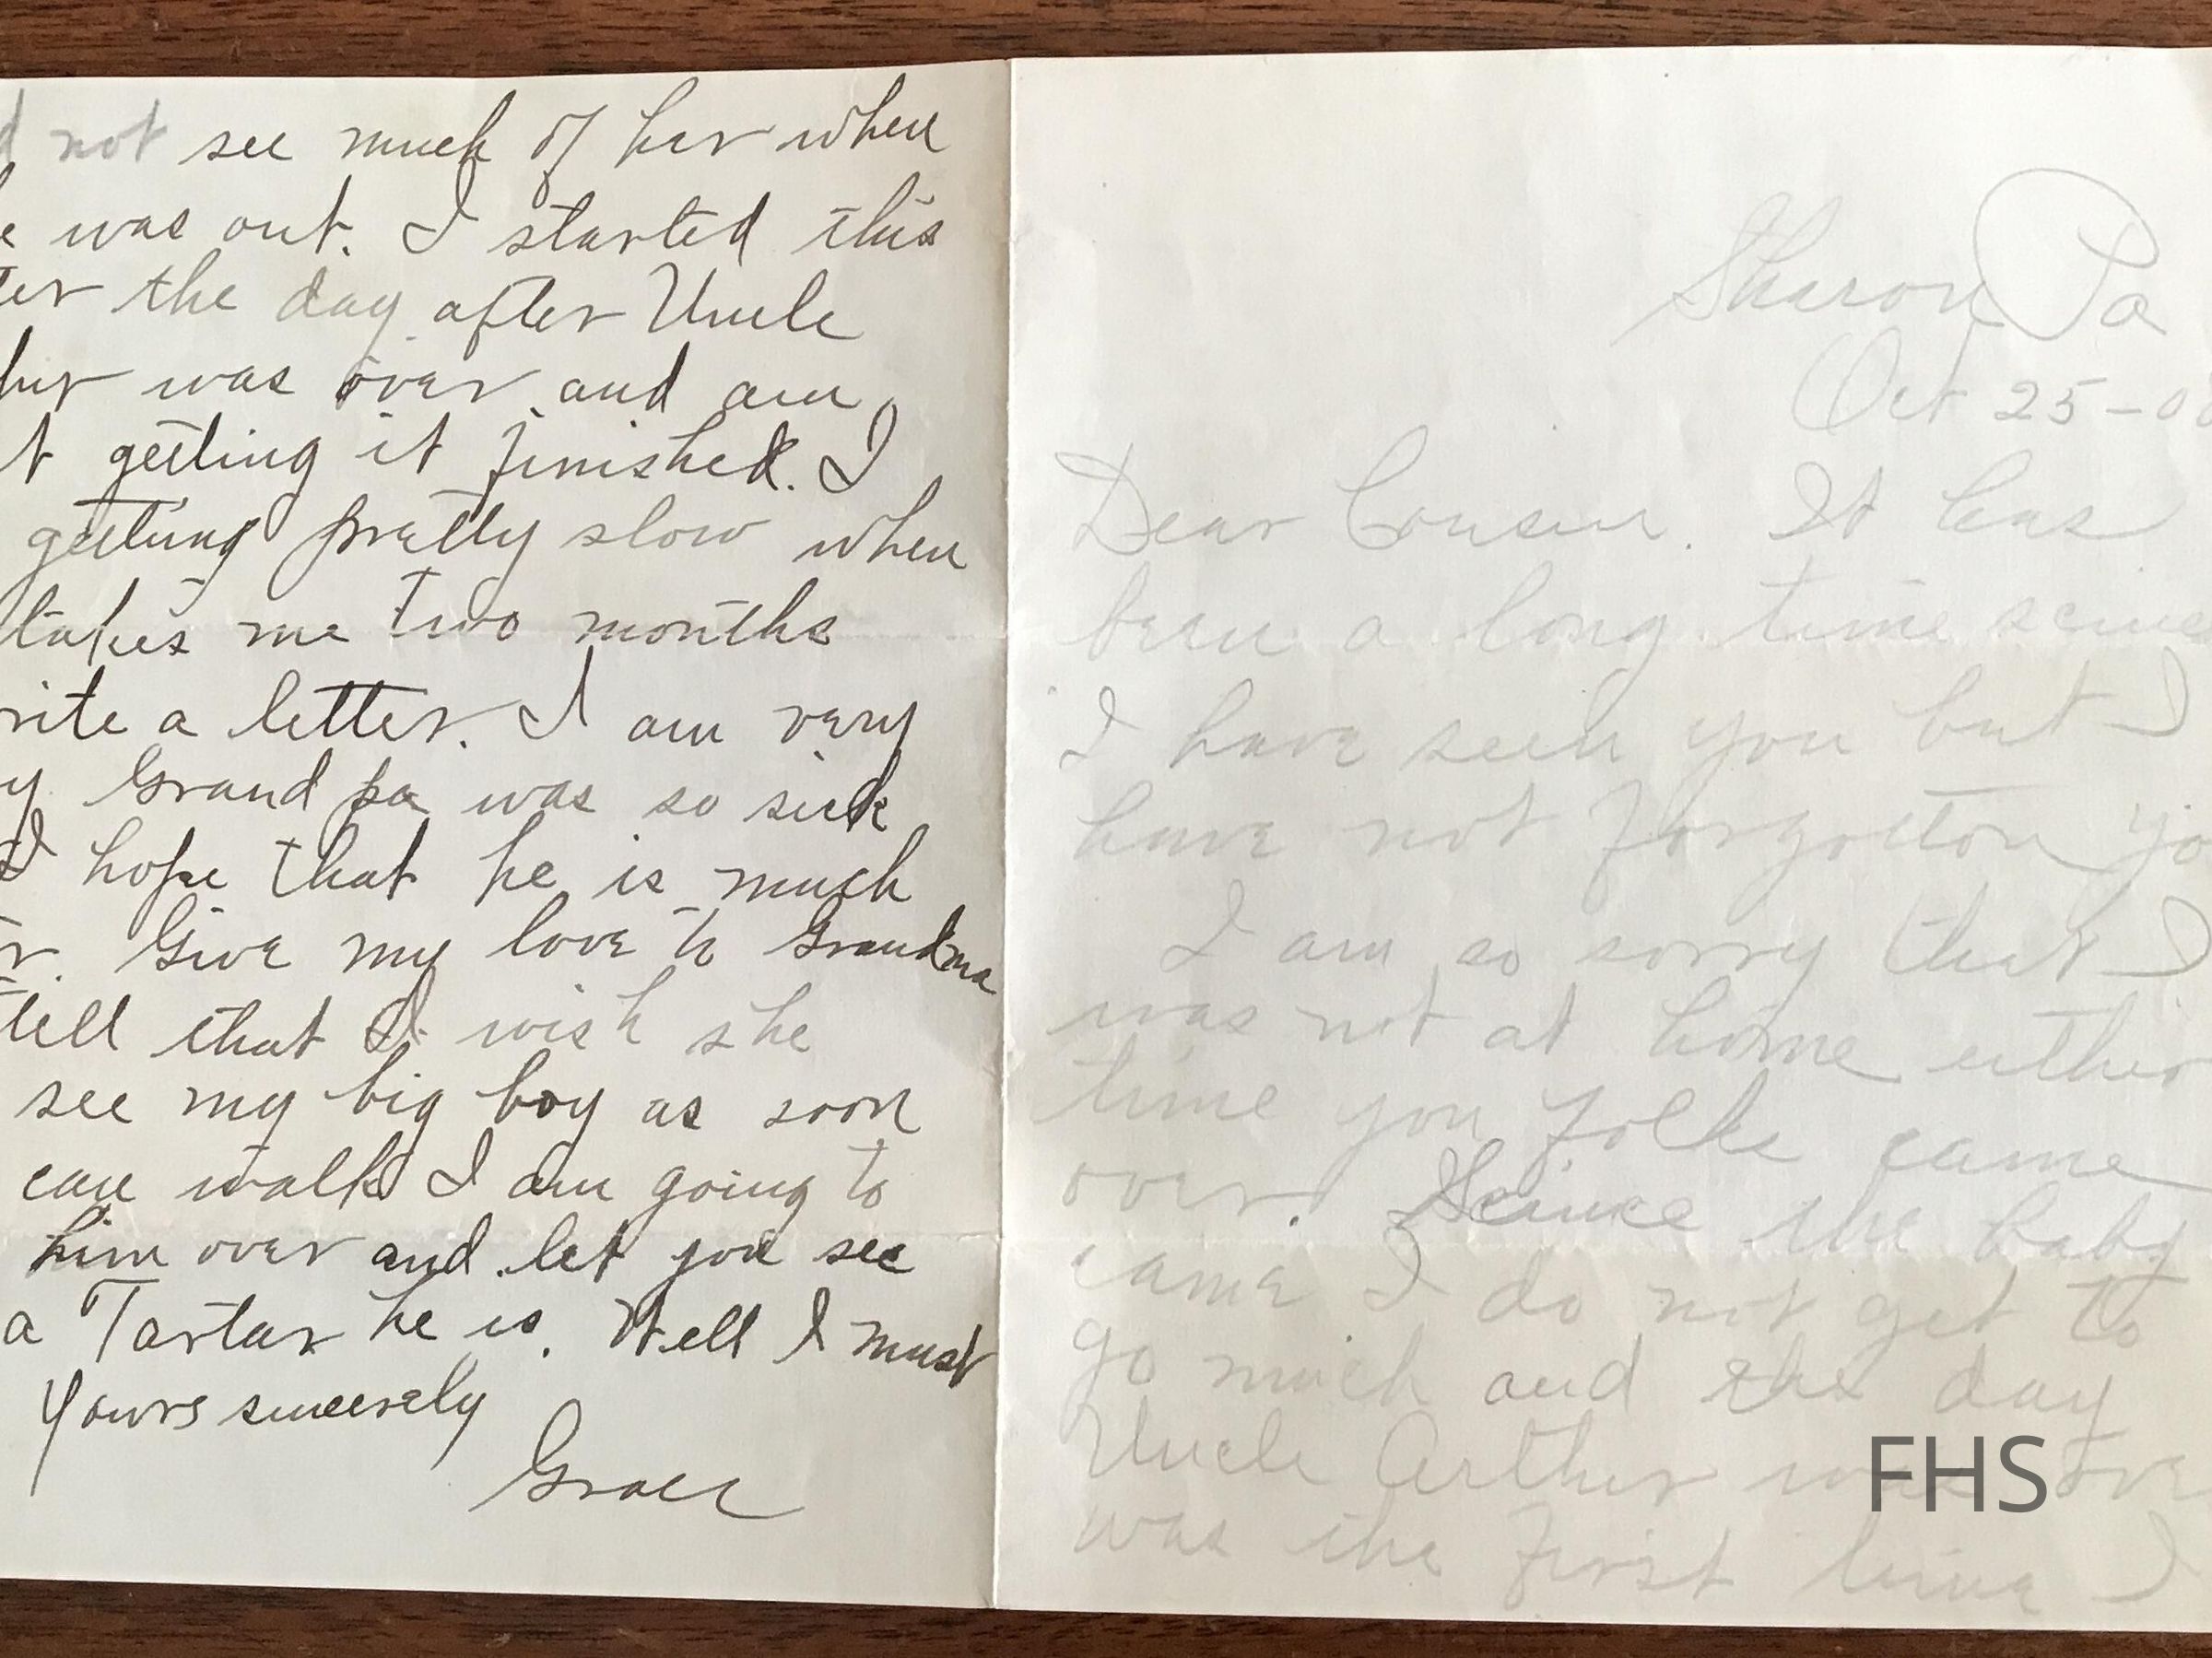 Sharon Pa
Oct 25-0
Dear Cousin. It has
been a long time scince
I have seen you but I
have not forgotton yo
I am so sorry that I
was not at home either
time you folks came
over. Scince the baby
came I do not get to
go much and the day
Uncle Arthur was ove
was the first time I
d not see much of her when
e was out. I started this
ter the day after Uncle
hur was over and am
t getting it finished. I
getting pretty slow when
takes me two months
rite a letter. I am very
y Grand pa was so sick
I hope that he is much
r. Give my love to Grandma
tell that I wish she
see my big boy as soon
can walk I am going to
him over and let you see
a Tartar he is. Well I must
Yours sincerely
Grace
FHS